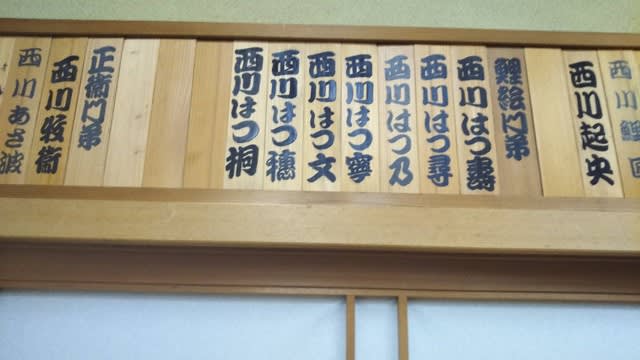 西川起央
鯉絵門弟
西川はつ壽
西川はつ尋
西川はつ乃
西川はつ寧
西川はつ文
西川はつ穗
西川はつ桐
正衛門弟
西川牧衛
西川あさ波